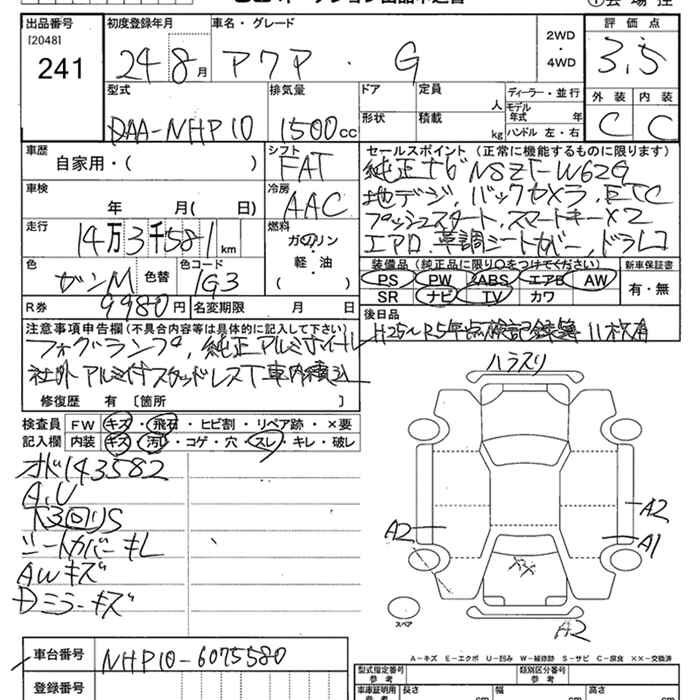 出品番号 初度登録年月 車名・グレード 2WD・4WD 評価点
[2048]
241 24 8月 アクア・G 3.5
型式 排気量 ドア 定員 人 ディーラー・並行 外装 内装
DAA-NHP10 1500cc 形状 積載 kg モデル年式 年 C C
ハンドル 左・右
車歴 自家用・( ) シフト FAT セールスポイント (正常に機能するものに限ります)
純正ナビ NSZT-W62G
車検 年 月( 日) 冷房 AAC 地デジ, バックカメラ, ETC
プッシュスタート, スマートキー×2
走行 14万3千581km 燃料 ガソリン・軽・油 ( ) エアロ, 革調シートカバー, ドラレコ
装備品(純正品に限り○をつけてください) 新車保証書
色 ガンM 色替 色コード 1G3 PS PW ABS エアB AW 有・無
SR ナビ TV カワ
R券 9980円 名変期限 月 日 後日品
H25~R5年点検記録簿 11枚有
注意事項申告欄(不具合内容等は具体的に記入して下さい)
フォグランプ, 純正アルミホイール
社外アルミ付スタッドレスT車内積込
修復歴 有 [箇所 ]
検査員 FW キズ・飛石・ヒビ割・リペア跡・×要
記入欄 内装 キズ・汚れ・コゲ・穴・スレ・キレ・破レ
オドメ143582
A,U
下回りS
シートカバーキレ
AWキズ
Dミラーキズ
ハラスリ
A2
A2
A1
XX
A2
スペア
A-キズ E-エクボ U-凹み W-補修跡 S-サビ C-腐食 ××-交換済
車台番号 NHP10-6075580
登録番号
型式指定番号 参考 類別区分番号 参考
車庫証明用 参考 長さ cm 幅 cm 高さ cm